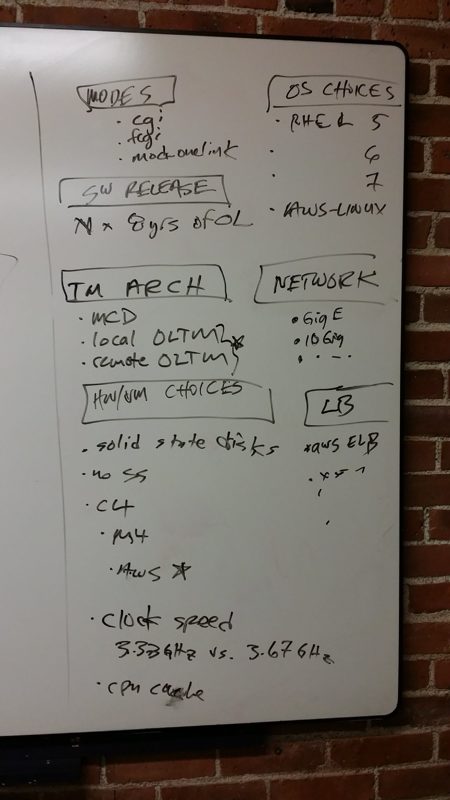 MODES
· cgi
· fcgi
· mod-onelink
SW RELEASE
N x 8yrs of OL
TM ARCH
· MCD
· local OLTM
· remote OLTM
HW/VM CHOICES
· solid state disks
· no SS
· C4
· M4
· AWS *
· clock speed
3.33GHz vs. 3.67GHz
· cpu cache
OS CHOICES
· RHEL 5
· 6
· 7
· AWS-LINUX
NETWORK
• Gig E
• 10Gig
LB
*aws ELB